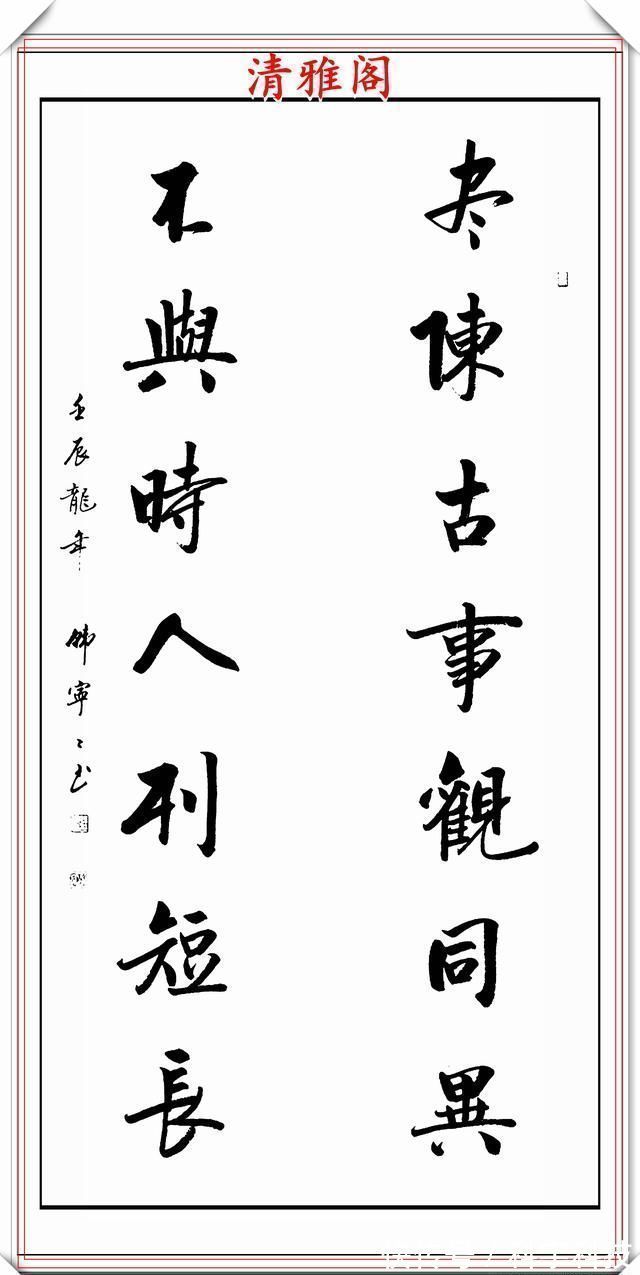 清雅阁
尽陳古事觀同異
不與時人刊短長
壬辰龍年 韩寧寧书